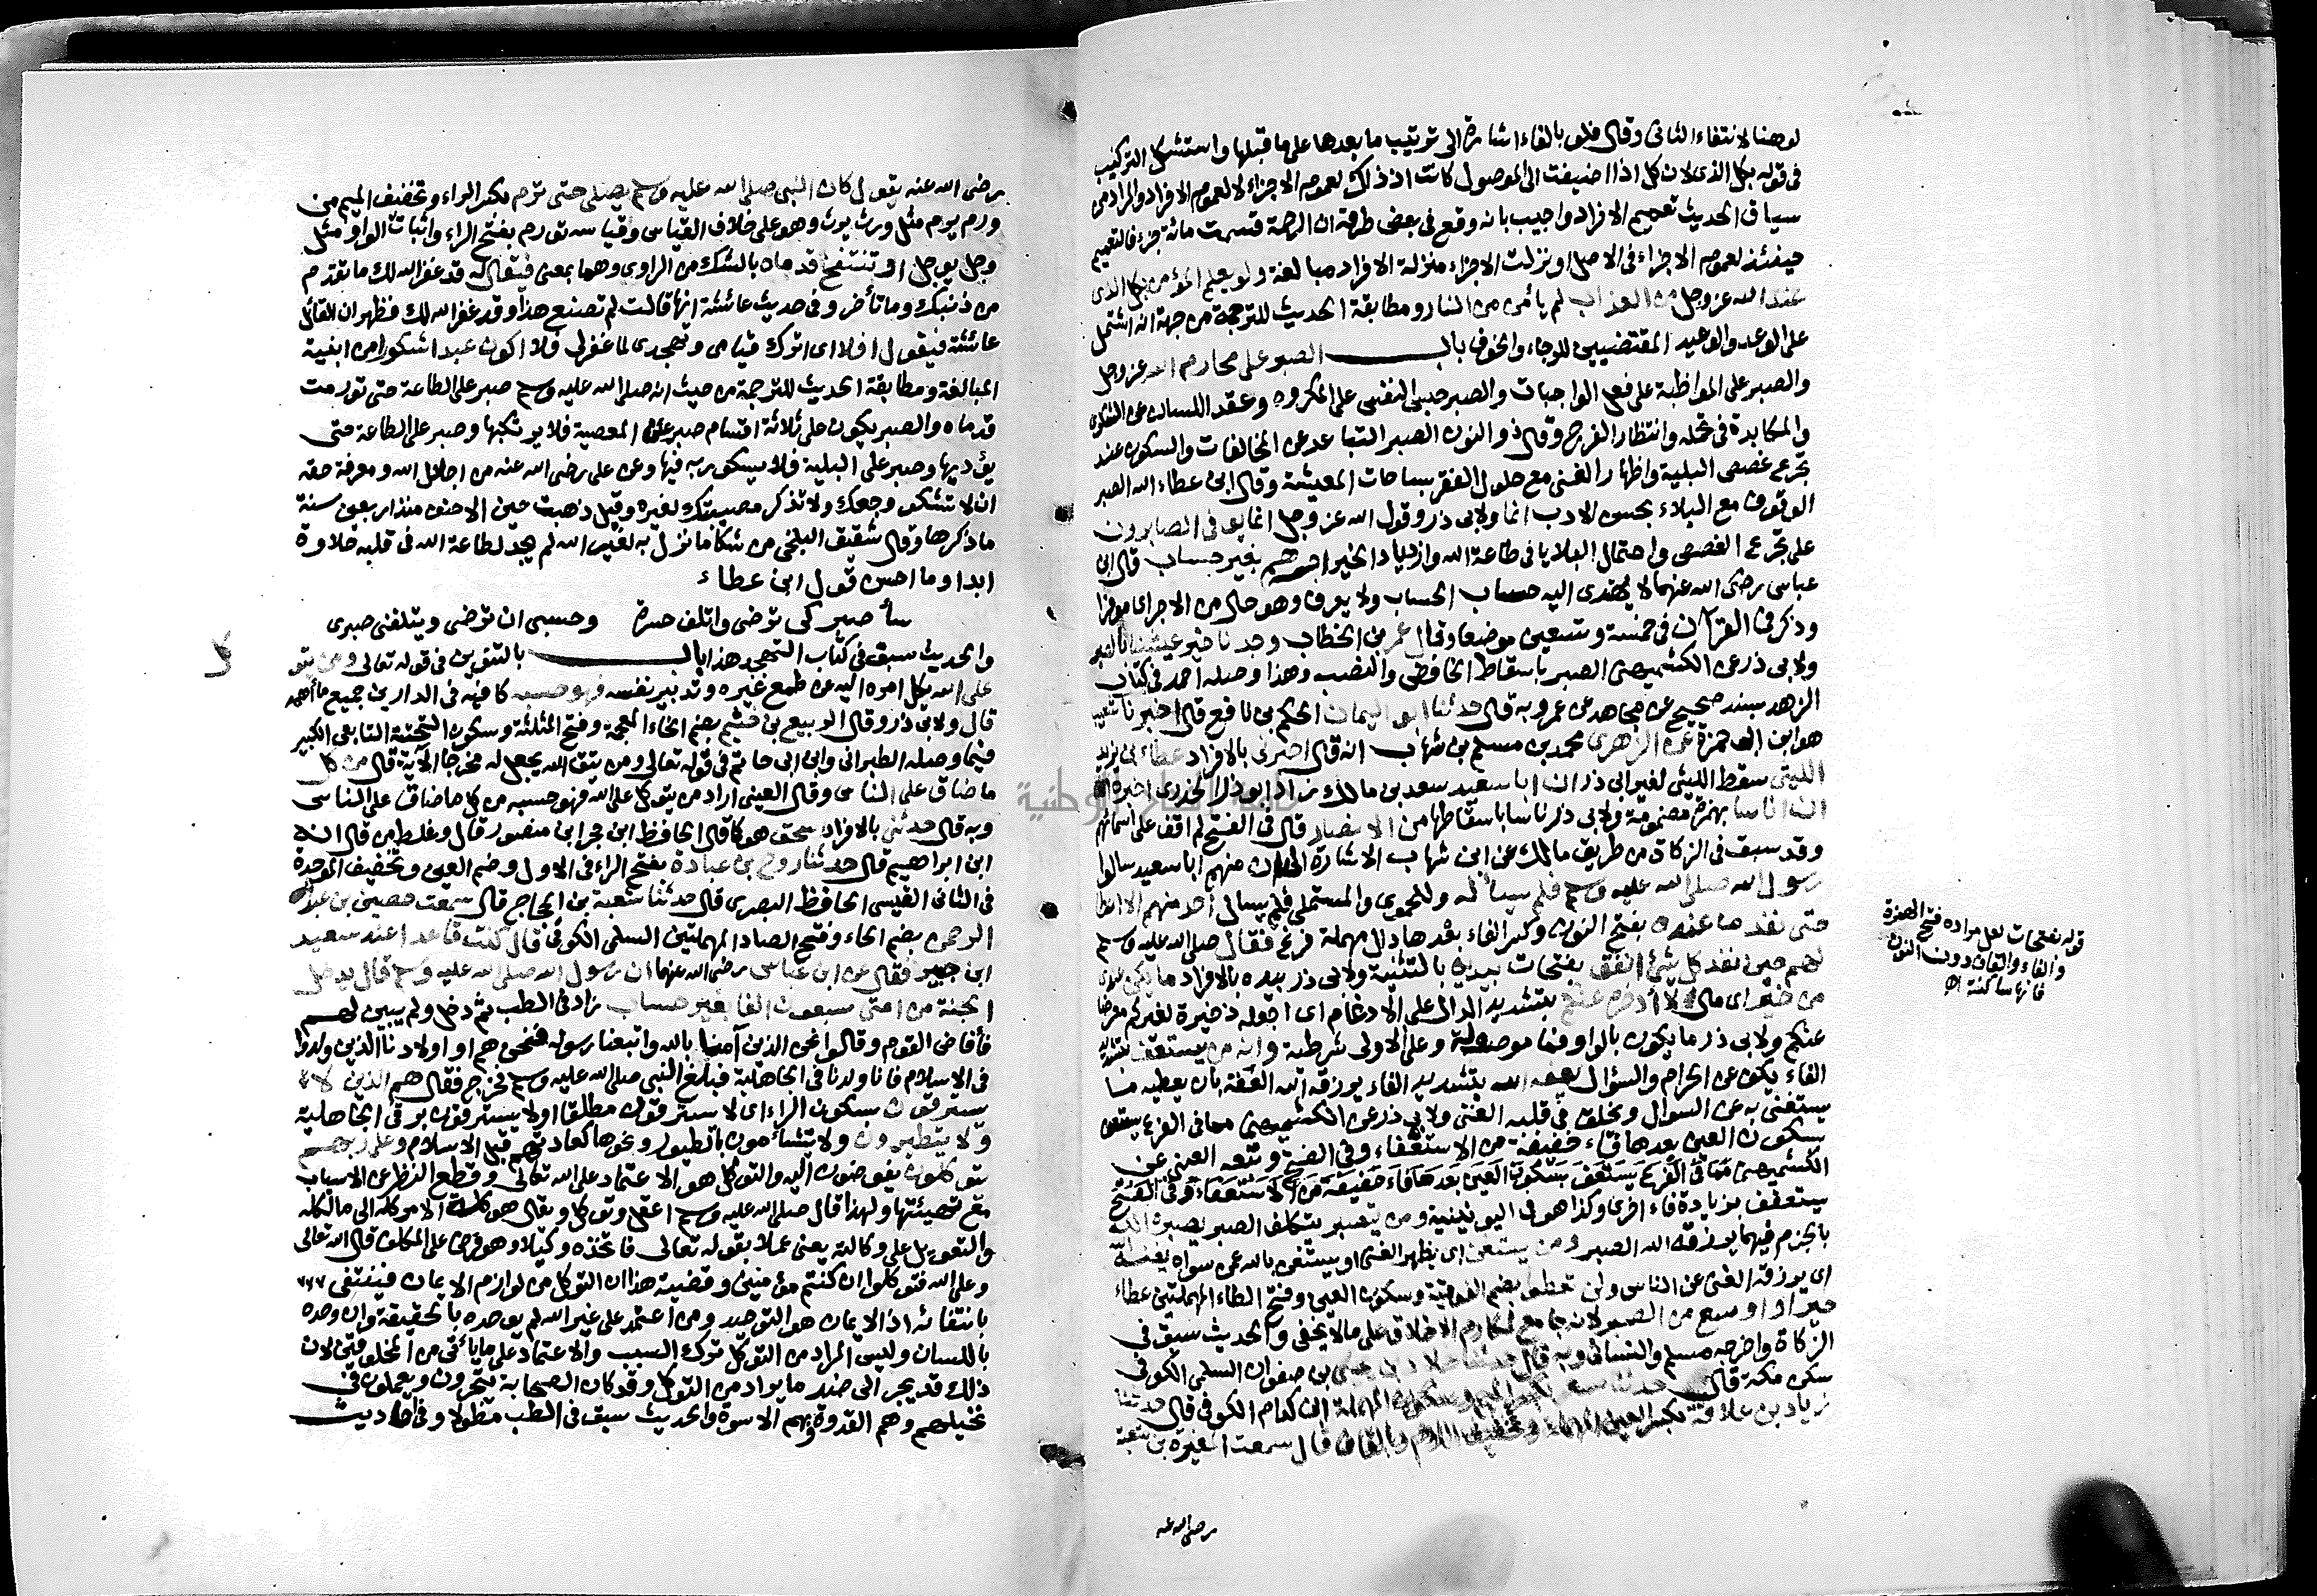 لو هنا لانتفاء الثانى وقال فلو بالفاء اشارة الى ترتيب ما بعدها على ما قبلها واستشكل التركيب
فى قوله بكل الذى لان كل اذا اضيفت الى الموصول كانت اذ ذلك لعموم الاجزاء لا لعموم الافراد والمراد من
سياق الحديث تعميم الافراد واجيب بانه وقع فى بعض طرقه ان الرحمة قسمت مائة جزء فالتعميم
حينئذ لعموم الاجزاء فى الاصل او نزلت الاجزاء منزلة الافراد مبالغة ولو يعلم المؤمن بكل الذى
عند الله عز وجل من العذاب لم يأمن من النار ومطابقة الحديث للترجمة من جهة انه اشتمل
على الوعد والوعيد المقتضيين للرجاء والخوف باب الصبر على محارم الله عز وجل
والصبر على المواظبة على فعل الواجبات والصبر حبس النفس على المكروه وعقد اللسان عن الشكوى
والمكابدة فى تحمله وانتظار الفرج وقال ذو النون الصبر التباعد عن المخالفات والسكون عند
تجرع غصص البلية واظهار الغنى مع حلول الفقر بساحات المعيشة وقال ابن عطاء الله الصبر
الوقوف مع البلاء بحسن الادب انما ولابى ذر وقول الله عز وجل انما يوفى الصابرون
على تجرع الغصص واحتمال البلايا فى طاعة الله وازدياد الخير اجرهم بغير حساب قال ابن
عباس رضى الله عنهما لا يهتدى اليه حساب الحساب ولا يعرف وهو حال من الاجر اى موفرا
وذكر فى القرآن فى خمسة وتسعين موضعا وقال عمر بن الخطاب وجدنا خير عيشنا بالصبر
ولابى ذر عن الكشميهنى الصبر باسقاط الخافض والنصب وهذا وصله احمد فى كتاب
الزهد بسند صحيح عن مجاهد عن عمر وبه قال حدثنا ابو اليمان الحكم بن نافع قال اخبرنا شعيب
هو ابن ابى حمزة عن الزهرى محمد بن مسلم بن شهاب انه قال اخبرنى بالافراد عطاء بن يزيد
الليثى سقط الليثى لغير ابى ذر ان ابا سعيد سعد بن مالك زاد ابو ذر الخدرى اخبره
ان اناسا بهمزة مضمومة ولابى ذر ناسا باسقاطها من الانصار قال فى الفتح لم اقف على اسمائهم
وقد سبق فى الزكاة من طريق مالك عن ابن شهاب الاشارة الى ان منهم ابا سعيد سالوا
رسول الله صلى الله عليه وسم فلم يساله وللحموى والمستملى فلم يسال احد منهم الا اعطاه
حتى نفد ما عنده بفتح النون وكسر الفاء بعدها دال مهملة فرغ فقال صلى الله عليه وسم
لهم حين نفد كل شئ انفق بفتحات بيديه بالتثنية ولابى ذر بيده بالافراد ما يكن عندى
من خير اى مال لا ادخره عنكم بتشديد الدال على الادغام اى اجعله ذخيرة لغيركم معرضا
عنكم ولابى ذر ما يكون بالواو فما موصولة وعلى الاولى شرطية وانه من يستعف بتشديد
الفاء يكف عن الحرام والسؤال يعفه الله بتشديد الفاء يرزقه الله العفة بان يعطيه ما
يستغنى به عن السوال ويخلق فى قلبه الغنى ولابى ذر عن الكشميهنى مما فى الفرع يستعف
بسكون العين بعدها فاء خفيفة من الاستعفاء وفى الفتح وتبعه العينى عن
الكشميهنى مما فى الفرع يستعف بسكون العين بعدها فاء خفيفة من الاستعفاء وفى الفتح
يستعفف بزيادة فاء اخرى وكذا هو فى اليونينية ومن يتصبر يتكلف الصبر يصبره الله
بالجزم فيهما يرزقه الله الصبر ومن يستغن اى يظهر الغنى او يستغنى بالله عن سواه يغنه الله
اى يرزقه الغنى عن الناس ولن تعطوا بضم الفوقية وسكون العين وفتح الطاء المهملتين عطاء
خيرا واوسع من الصبر لانه جامع لمكارم الاخلاق على ما لا يخفى والحديث سبق فى
الزكاة واخرجه مسلم والنسائى وبه قال حدثنا خلاد بن يحيى بن صفوان السلمى الكوفى
سكن مكة قال حدثنا مسعر بكسر الميم وسكون المهملة ابن كدام الكوفى قال حدثنا
زياد بن علاقة بكسر العين المهملة وتخفيف اللام وبالقاف قال سمعت المغيرة بن شعبة
رضى الله عنه
قوله بفتحات لعل مراده فتح الهمزة
والفاء والقاف دون النون
فانها ساكنة اهـ
رضى الله عنه يقول كان النبى صلى الله عليه وسم يصلى حتى ترم بكسر الراء وتخفيف الميم من
ورم يرم مثل ورث يرث وهو على خلاف القياس وقياسه تورم بفتح الراء واثبات الواو مثل
وجل يوجل او تنتفخ قدماه بالشك من الراوى وهما بمعنى فيقال له قد غفر الله لك ما تقدم
من ذنبك وما تأخر وفى حديث عائشة انها قالت لم تصنع هذا وقد غفر الله لك فظهر ان القائل
عائشة فيقول افلا اى اترك قيامى وتهجدى لما غفر لى فلا اكون عبدا شكورا من ابنية
المبالغة ومطابقة الحديث للترجمة من حيث انه صلى الله عليه وسم صبر على الطاعة حتى تورمت
قدماه والصبر يكون على ثلاثة اقسام صبر عن المعصية فلا يرتكبها وصبر على الطاعة حتى
يؤديها وصبر على البلية فلا يشكو ربه فيها وعن على رضى الله عنه من اجلال الله ومعرفة حقه
ان لا تشكو وجعك ولا تذكر مصيبتك لغيره وقيل ذهبت عين الاحنف منذ اربعين سنة
ما ذكرها وقال شقيق البلخى من شكا ما نزل به لغير الله لم يجد لطاعة الله فى قلبه حلاوة
ابدا وما احسن قول ابن عطاء
سأصبر كى ترضى واتلف حسرة وحسبى ان ترضى ويتلفنى صبرى
والحديث سبق فى كتاب التهجد هذا باب بالتنوين فى قوله تعالى ومن يتو
كل
على الله يكل امره اليه عن طمع غيره وتدبير نفسه فهو حسبه كافيه فى الدارين جميع ما أهمه
قال ولابى ذر وقال الربيع بن خثيم بضم الخاء المعجمة وفتح المثلثة وسكون التحتية التابعى الكبير
فيما وصله الطبرانى وابن ابى حاتم فى قوله تعالى ومن يتق الله يجعل له مخرجا الآية قال من كل
ما ضاق على الناس وقال العينى اراد من يتوكل على الله فهو حسبه من كل ما ضاق على الناس
وبه قال حدثنى بالافراد اسحق هو كما قال الحافظ ابن حجر ابن منصور قال وغلط من قال انه
ابن ابراهيم قال حدثنا روح بن عبادة بفتح الراء فى الاول وضم العين وتخفيف الموحدة
فى الثانى القيسى الحافظ البصرى قال حدثنا شعبة بن الحجاج قال سمعت حصين بن عبد
الرحمن بضم الحاء وفتح الصاد المهملتين السلمى الكوفى قال كنت قاعدا عند سعيد
ابن جبير فقال عن ابن عباس رضى الله عنهما ان رسول الله صلى الله عليه وسم قال يدخل
الجنة من امتى سبعون الفا بغير حساب زاد فى الطب ثم دخل ولم يبين لهم
فأفاض القوم وقالوا نحن الذين آمنا بالله واتبعنا رسوله فنحن هم او اولادنا الذين ولدوا
فى الاسلام فانا ولدنا فى الجاهلية فبلغ النبى صلى الله عليه وسم فخرج فقال هم الذين لا
يسترقون بسكون الراء اى لا يسترقون مطلقا او لا يسترقون برقى الجاهلية
ولا يتطيرون ولا يتشأمون بالطيور ونحوها كعادتهم قبل الاسلام وعلى ربهم
يتوكلون يفوضون اليه والتوكل هو الاعتماد على الله تعالى وقطع النظر عن الاسباب
مع تهيئتها ولهذا قال صلى الله عليه وسم اعقل وتوكل ويقال هو كلة الامر كله الى مالكه
والتعويل على وكالته يعنى عملا بقوله تعالى فاتخذه وكيلا وهو فرض على المكلف قال الله تعالى
وعلى الله فتوكلوا ان كنتم مؤمنين وقضية هذا ان التوكل من لوازم الايمان فينتفى
بانتفائه اذ الايمان هو التوحيد ومن اعتمد على غير الله لم يوحده بالحقيقة وان وحده
باللسان وليس المراد من التوكل ترك السبب والاعتماد على ما يأتى من المخلوقين لان
ذلك قد يجر الى ضد ما يراد من التوكل وقد كان الصحابة يتجرون ويعملون فى
نخيلهم وهم القدوة وبهم الاسوة والحديث سبق فى الطب مطولا وفى احاديث